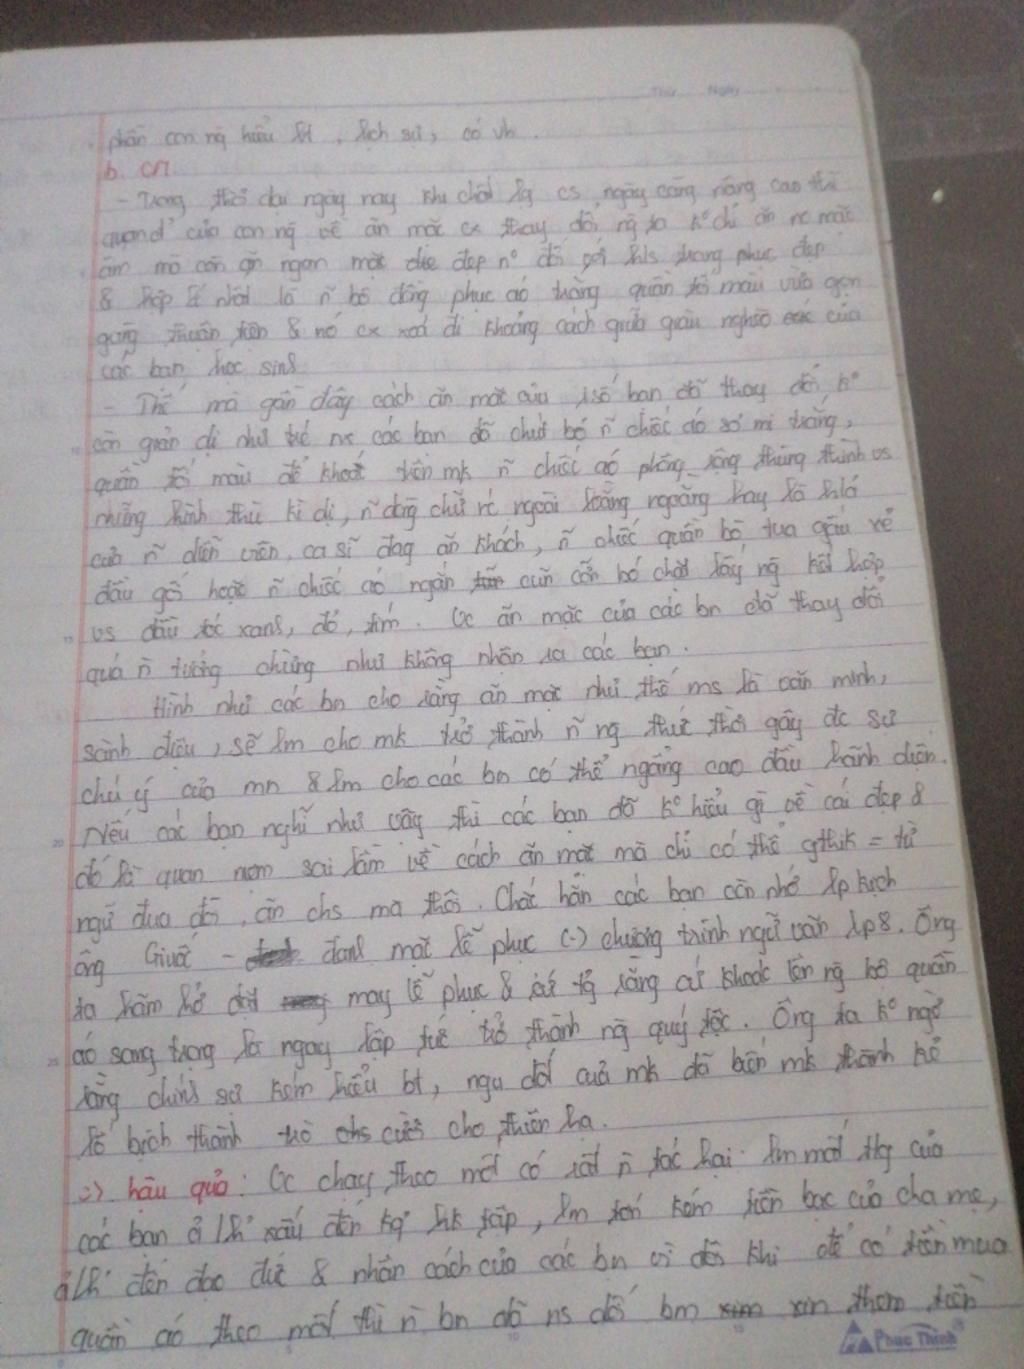 Thứ Ngày
phần con ng hiểu bt, lịch sự, có vh.
b. CM
- Trong thời đại ngày nay khi chất lg cs ngày càng nâng cao thì
quan đ' của con ng về ăn mặc cx thay đổi ng ta k° chỉ ăn no mặc
ấm mà còn ăn ngon mặc đẹp n° đối với hs trang phục đẹp
& hợp lí nhất là ñ bộ đồng phục áo trắng quần tối màu vừa gọn
gàng thuận tiện & nó cx xoá đi khoảng cách giữa giàu nghèo của
các bạn học sinh
- Thế mà gần đây cách ăn mặc của 1số bạn đã thay đổi, k°
còn giản dị như trc nx các bạn đã chút bỏ ñ chiếc áo sơ mi trắng,
quần tối màu để khoác trên mk ñ chiếc áo phông rộng thùng thình vs
những hình thù kì dị, ñ dòng chữ nc ngoài loằng ngoằng hay là h'ả
của ñ diễn viên, ca sĩ đag ăn khách, ñ chiếc quần bò tua gấu xẻ
đầu gối hoặc ñ chiếc áo ngắn cũn cỡn bó chặt lấy ng kết hợp
vs đầu tóc xanh, đỏ, tím. Vc ăn mặc của các bn đã thay đổi
quá ñ tưởng chừng như không nhận ra các bạn.
Hình như các bn cho rằng ăn mặc như thế ms là văn minh,
sành điệu, sẽ lm cho mk trở thành ñ ng thức thời gây đc sự
chú ý của mn & lm cho các bn có thể ngẩng cao đầu hãnh diện.
Nếu các bạn nghĩ như vậy thì các bạn đã k° hiểu gì về cái đẹp &
đó là quan nịm sai lầm về cách ăn mặc mà chỉ có thể gthik = từ
ngữ đua đòi, ăn chs mà thôi. Chắc hẳn các bạn còn nhớ lp kịch
ông Giuốc - đanh mặc lễ phục (-) chương trình ngữ văn lp 8. Ông
ta hăm hở đặt may lễ phục & cứ tg rằng cứ khoác lên ng bộ quần
áo sang trọng là ngay lập tức trở thành ng quý tộc. Ông ta k° ngờ
rằng chính sự kém hiểu bt, ngu dốt của mk đã biến mk thành kẻ
lố bịch thành trò chs cười cho thiên hạ.
=> hậu quả: Vc chạy theo mốt có rất ñ tác hại. lm mất tg của
các bạn ả/h' xấu đến kq hk tập, lm tốn kém tiền bạc của cha mẹ,
ả/h' đến đạo đức & nhân cách của các bn vì đôi khi để có tiền mua
quần áo theo mốt thì ñ bn đã ns dối bm xin thêm tiền
Phúc Thịnh